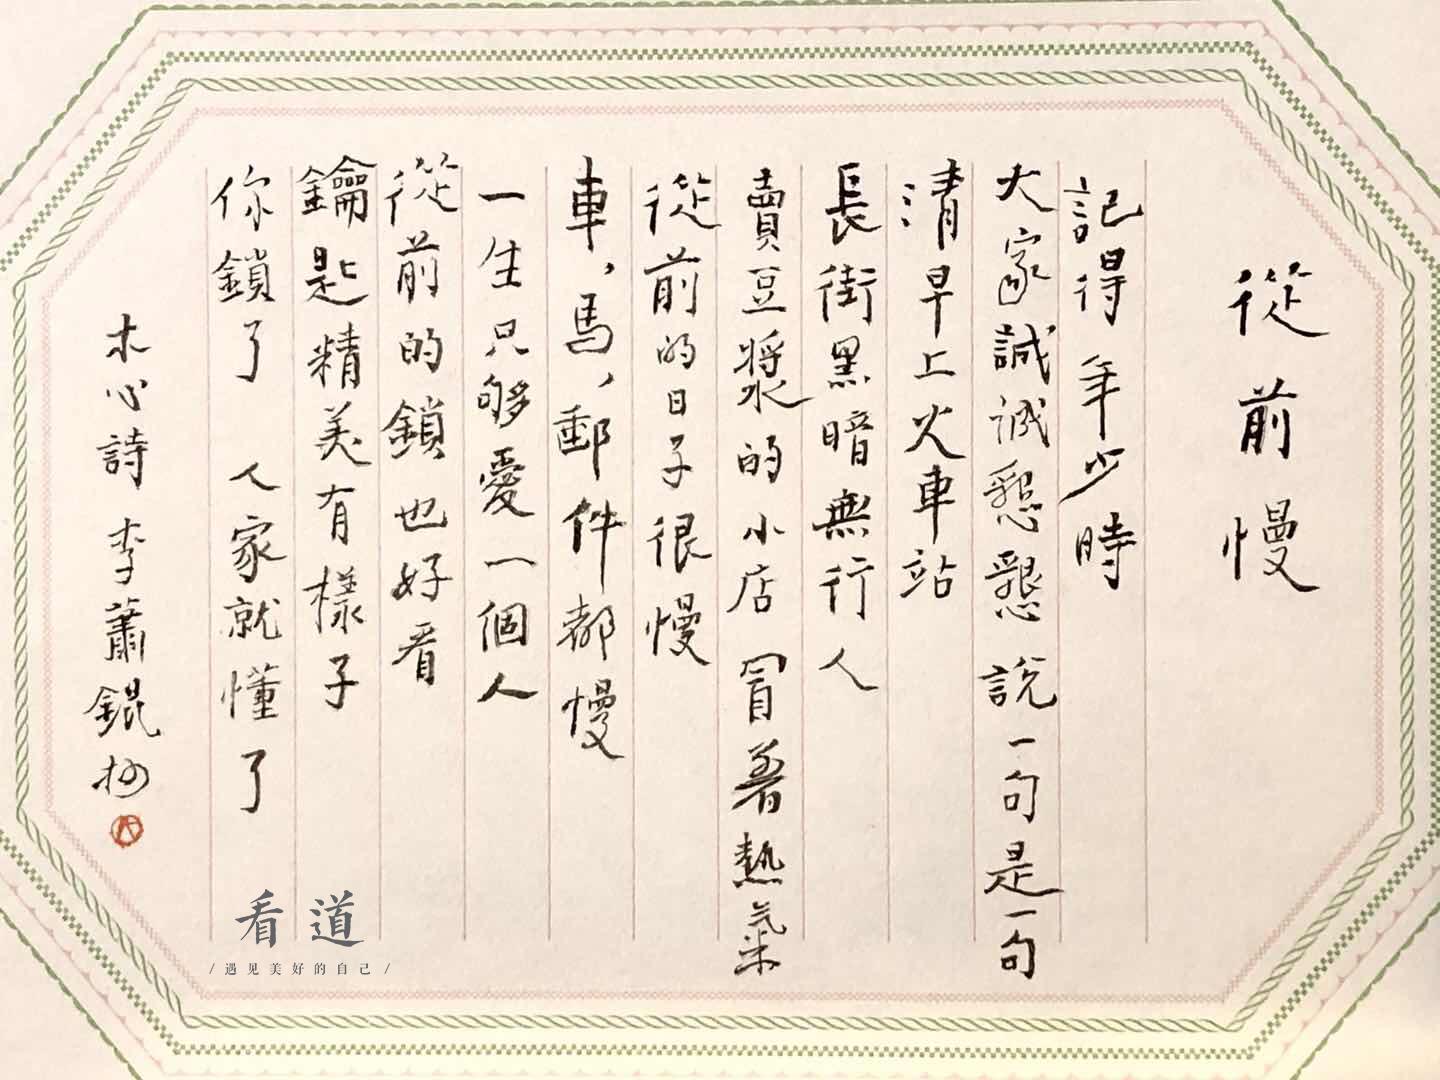 從前慢
記得年少時
大家誠誠懇懇 說一句是一句
清早上火車站
長街黑暗無行人
賣豆漿的小店冒著熱氣
從前的日子很慢
車，馬，郵件都慢
一生只够愛一個人
從前的鎖也好看
鑰匙精美有樣子
你鎖了 人家就懂了
木心詩 李蕭錕抄
看道
/遇见美好的自己/